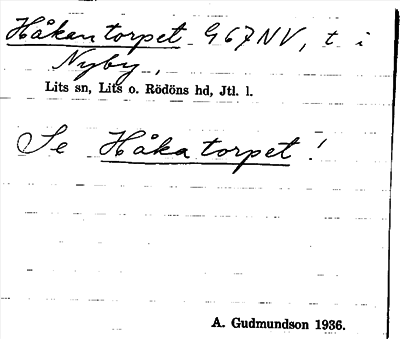 Håkantorpet G67NV, t i
Nyby,
Lits sn, Lits o. Rödöns hd, Jtl. l.
Se Håkatorpet!
A. Gudmundson 1936.